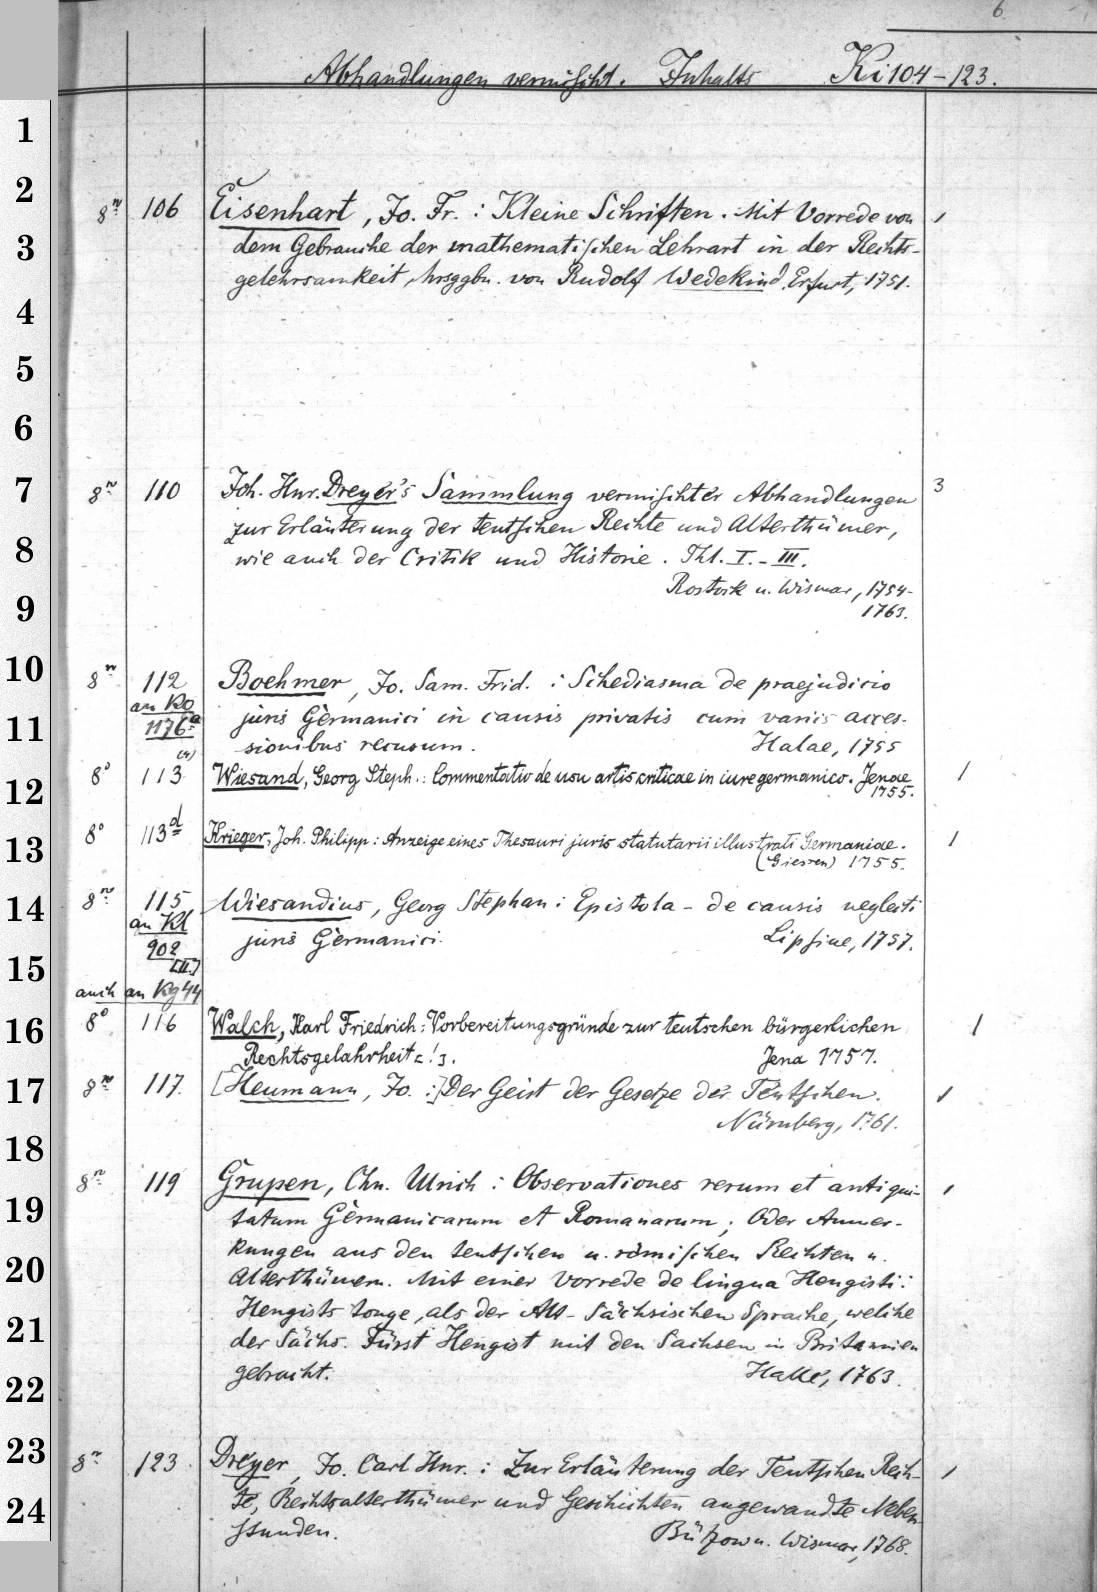 6
Abhandlungen vermischt. Inhalts Ki 104-123.
1
2
8° 106 Eisenhart, Jo. Fr.: Kleine Schriften. Mit Vorrede von 1
3 dem Gebrauche der mathematischen Lehrart in der Rechts-
gelehrsamkeit, hrsggbn. von Rudolf Wedekind, Erfurt, 1751.
4
5
6
7 8° 110 Joh. Hnr. Dreyer's Sammlung vermischter Abhandlungen 3
zur Erläuterung der teutschen Rechte und Alterthümer,
8 wie auch der Critik und Historie. Thl. I.-III.
Rostock u. Wismar, 1754-
9 1763.
10 8° 112 Boehmer, Jo. Sam. Frid.: Schediasma de praejudicio
an Ko
11 1176a juris Germanici in causis privatis cum variis acces-
(4) sionibus recusum. Halae, 1755
8° 113 Wiesand, Georg Steph.: Commentatio de usu artis criticae in iure germanico. Jenae 1
12 1755.
8° 113d Krieger, Joh. Philipp: Anzeige eines Thesauri juris statutarii illustrati Germaniae. 1
13 (Giessen) 1755.
14 8° 115 Wiesandius, Georg Stephan: Epistola - de causis neglecti
an Kl
902 juris Germanici. Lipsiae, 1757.
15 [II.]
auch an Kg 44
16 8° 116 Walch, Karl Friedrich: Vorbereitungsgründe zur teutschen bürgerlichen 1
Rechtsgelahrheit [!]. Jena 1757.
17 8° 117. [Heumann, Jo.:] Der Geist der Gesetze der Teutschen. 1
Nürnberg, 1761.
18
8° 119 Grupen, Chn. Ulrich: Observationes rerum et antiqui- 1
19 tatum Germanicarum et Romanarum; Oder Anmer-
kungen aus den teutschen u. römischen Rechten u.
20 Alterthümern. Mit einer Vorrede de lingua Hengisti:
Hengists tonge, als der Alt-Sächsischen Sprache, welche
21 der Sächs. Fürst Hengist mit den Sachsen in Britannien
22 gebracht. Halle, 1763.
23 8° 123 Dreyer, Jo. Carl Hnr.: Zur Erläuterung der Teutschen Rech- 1
24 te, Rechtsalterthümer und Geschichten angewandte Neben-
stunden. Bützow u. Wismar, 1768.